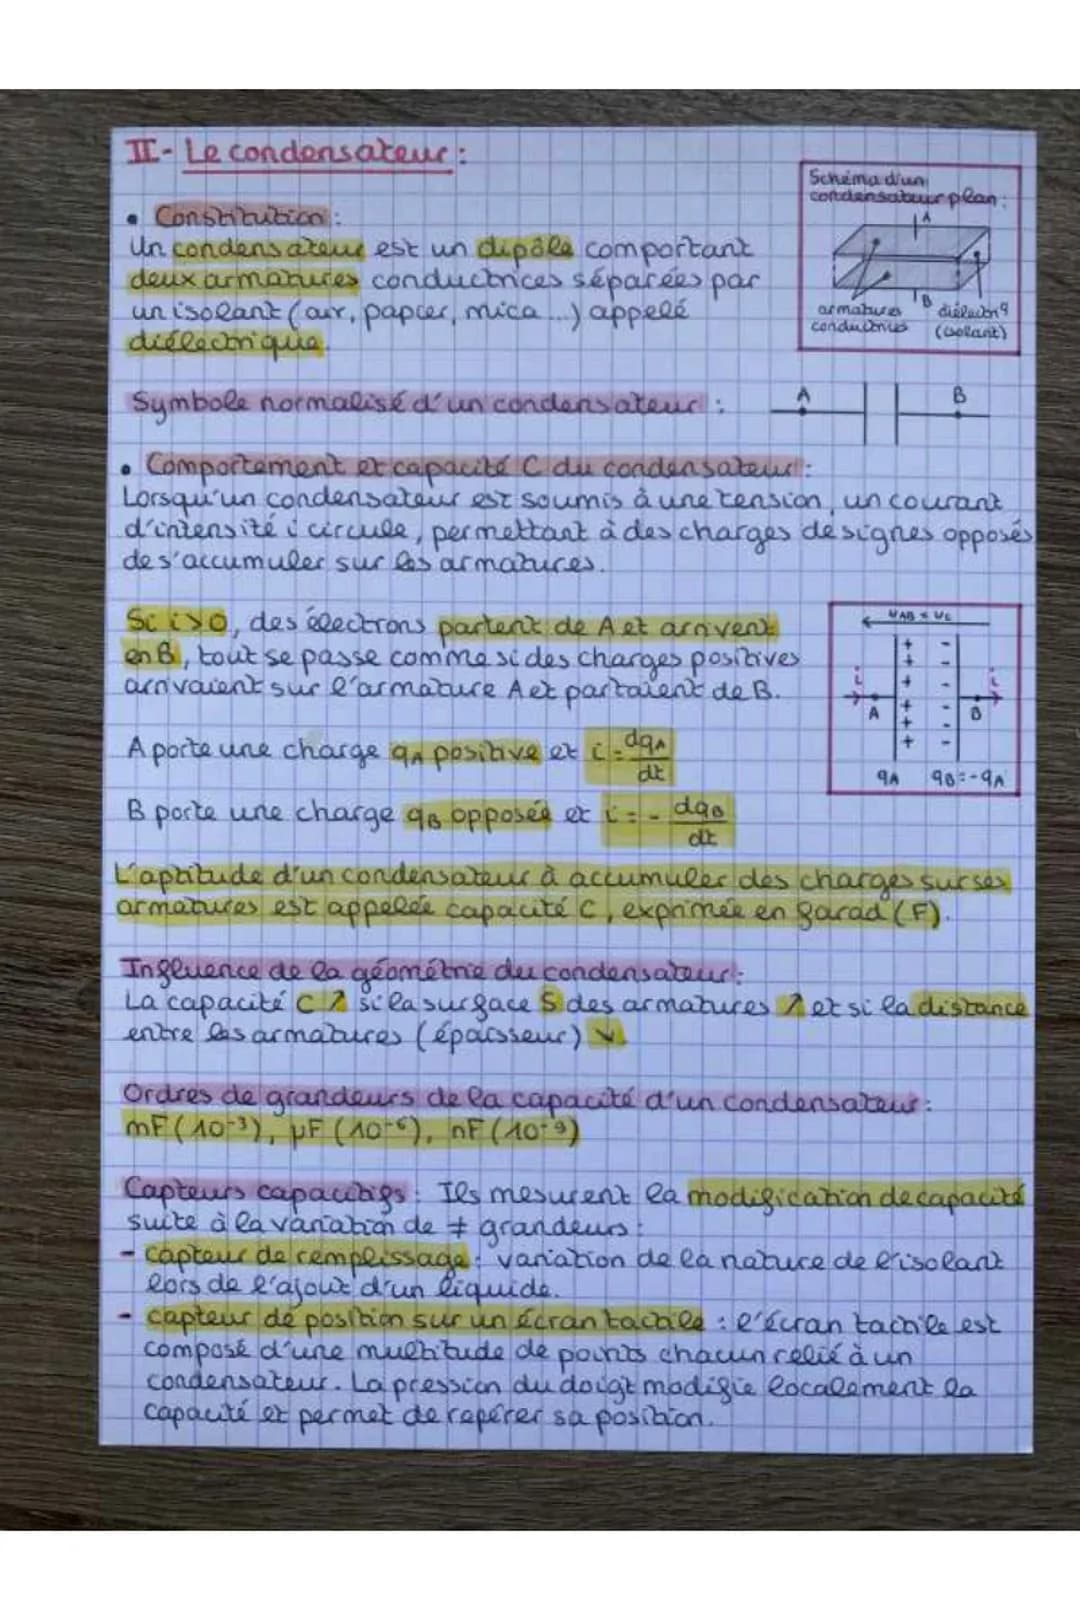 II- Le condensateur :
Schéma d'un
condensateur plan :
A
B
armatures
conductrices
diélectriq
(isolant)
• Constitution :
Un condensateur est un dipôle comportant
deux armatures conductrices séparées par
un isolant (air, papier, mica ...) appelé
diélectrique.
Symbole normalisé d'un condensateur :
A B
• Comportement et capacité C du condensateur :
Lorsqu'un condensateur est soumis à une tension, un courant
d'intensité i circule, permettant à des charges de signes opposés
de s'accumuler sur les armatures.
Si i>0, des électrons partent de A et arrivent
en B, tout se passe comme si des charges positives
arrivaient sur l'armature A et partaient de B.
uAB = uc
+ -
+ -
i + - i
A + - B
+ -
+ -
qA qB=-qA
A porte une charge qA positive et i = dqA/dt
B porte une charge qB opposée et i = - dqB/dt
L'aptitude d'un condensateur à accumuler des charges sur ses
armatures est appelée capacité C, exprimée en farad (F).
Influence de la géométrie du condensateur :
La capacité C ↗ si la surface S des armatures ↗ et si la distance
entre les armatures (épaisseur) ↘
Ordres de grandeurs de la capacité d'un condensateur :
mF (10⁻³), µF (10⁻⁶), nF (10⁻⁹)
Capteurs capacitifs : Ils mesurent la modification de capacité
suite à la variation de ≠ grandeurs :
- capteur de remplissage : variation de la nature de l'isolant
lors de l'ajout d'un liquide.
- capteur de position sur un écran tactile : l'écran tactile est
composé d'une multitude de points chacun relié à un
condensateur. La pression du doigt modifie localement la
capacité et permet de repérer sa position.